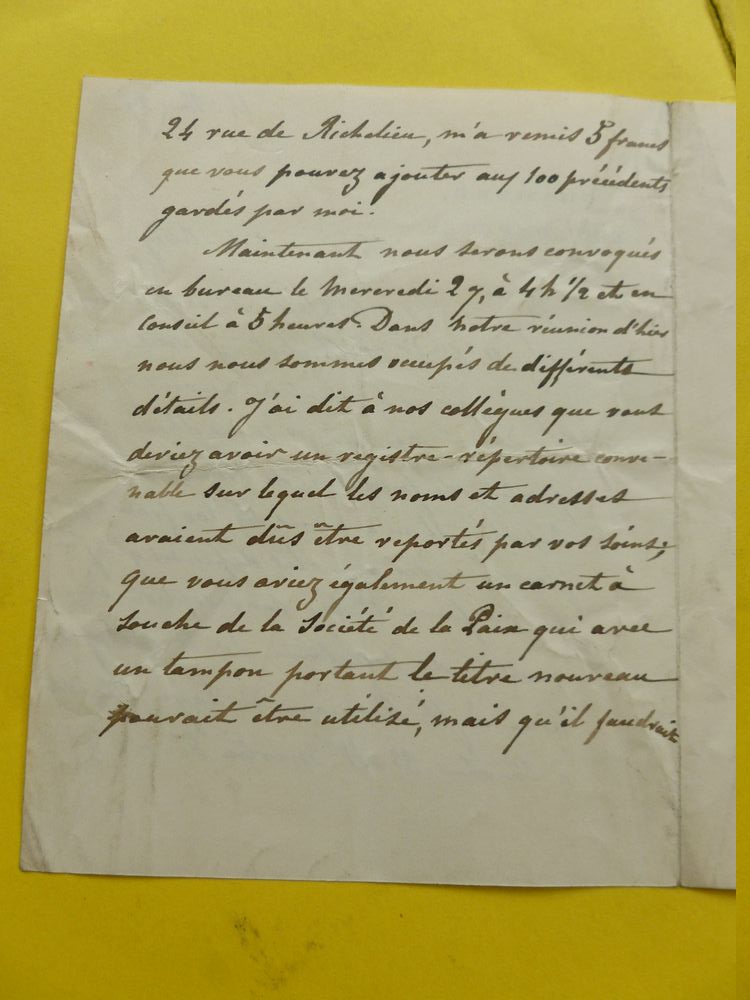 24 rue de Richelieu, m'a remis 5 francs
que vous pouvez ajouter aux 100 précédents
gardés par moi.
Maintenant nous serons convoqués
en bureau le Mercredi 27, à 4h 1/2 et en
Conseil à 5 heures. Dans notre réunion d'hier
nous nous sommes occupés de différents
détails. J'ai dit à nos collègues que vous
deviez avoir un registre-répertoire conve-
nable sur lequel les noms et adresses
avaient dûs être reportés par vos soins;
que vous aviez également un carnet à
souche de la Société de la Paix qui avec
un tampon portant le titre nouveau
pourait être utilisé, mais qu'il faudrait